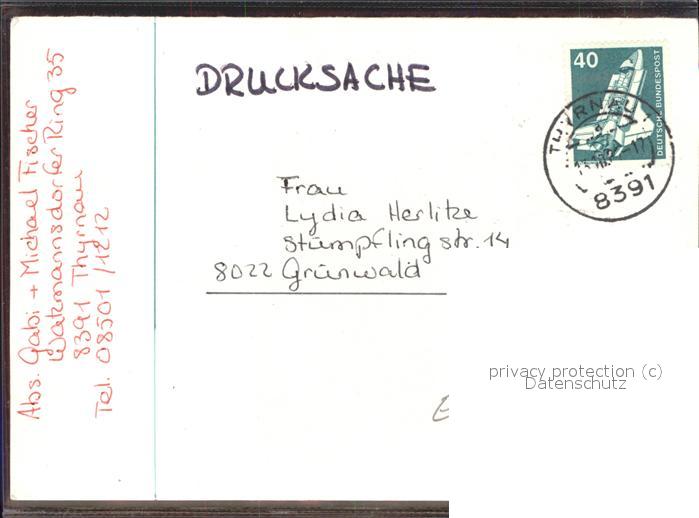 DRUCKSACHE
40
DEUTSCHE BUNDESPOST
THYRNAU
8391
Frau
Lydia Herlitze
Stümpflingstr. 14
8022 Grünwald
Abs. Gabi + Michael Fischer
Watzmannsdorfer Ring 35
8391 Thyrnau
Tel. 08501/1212
privacy protection (c)
Datenschutz